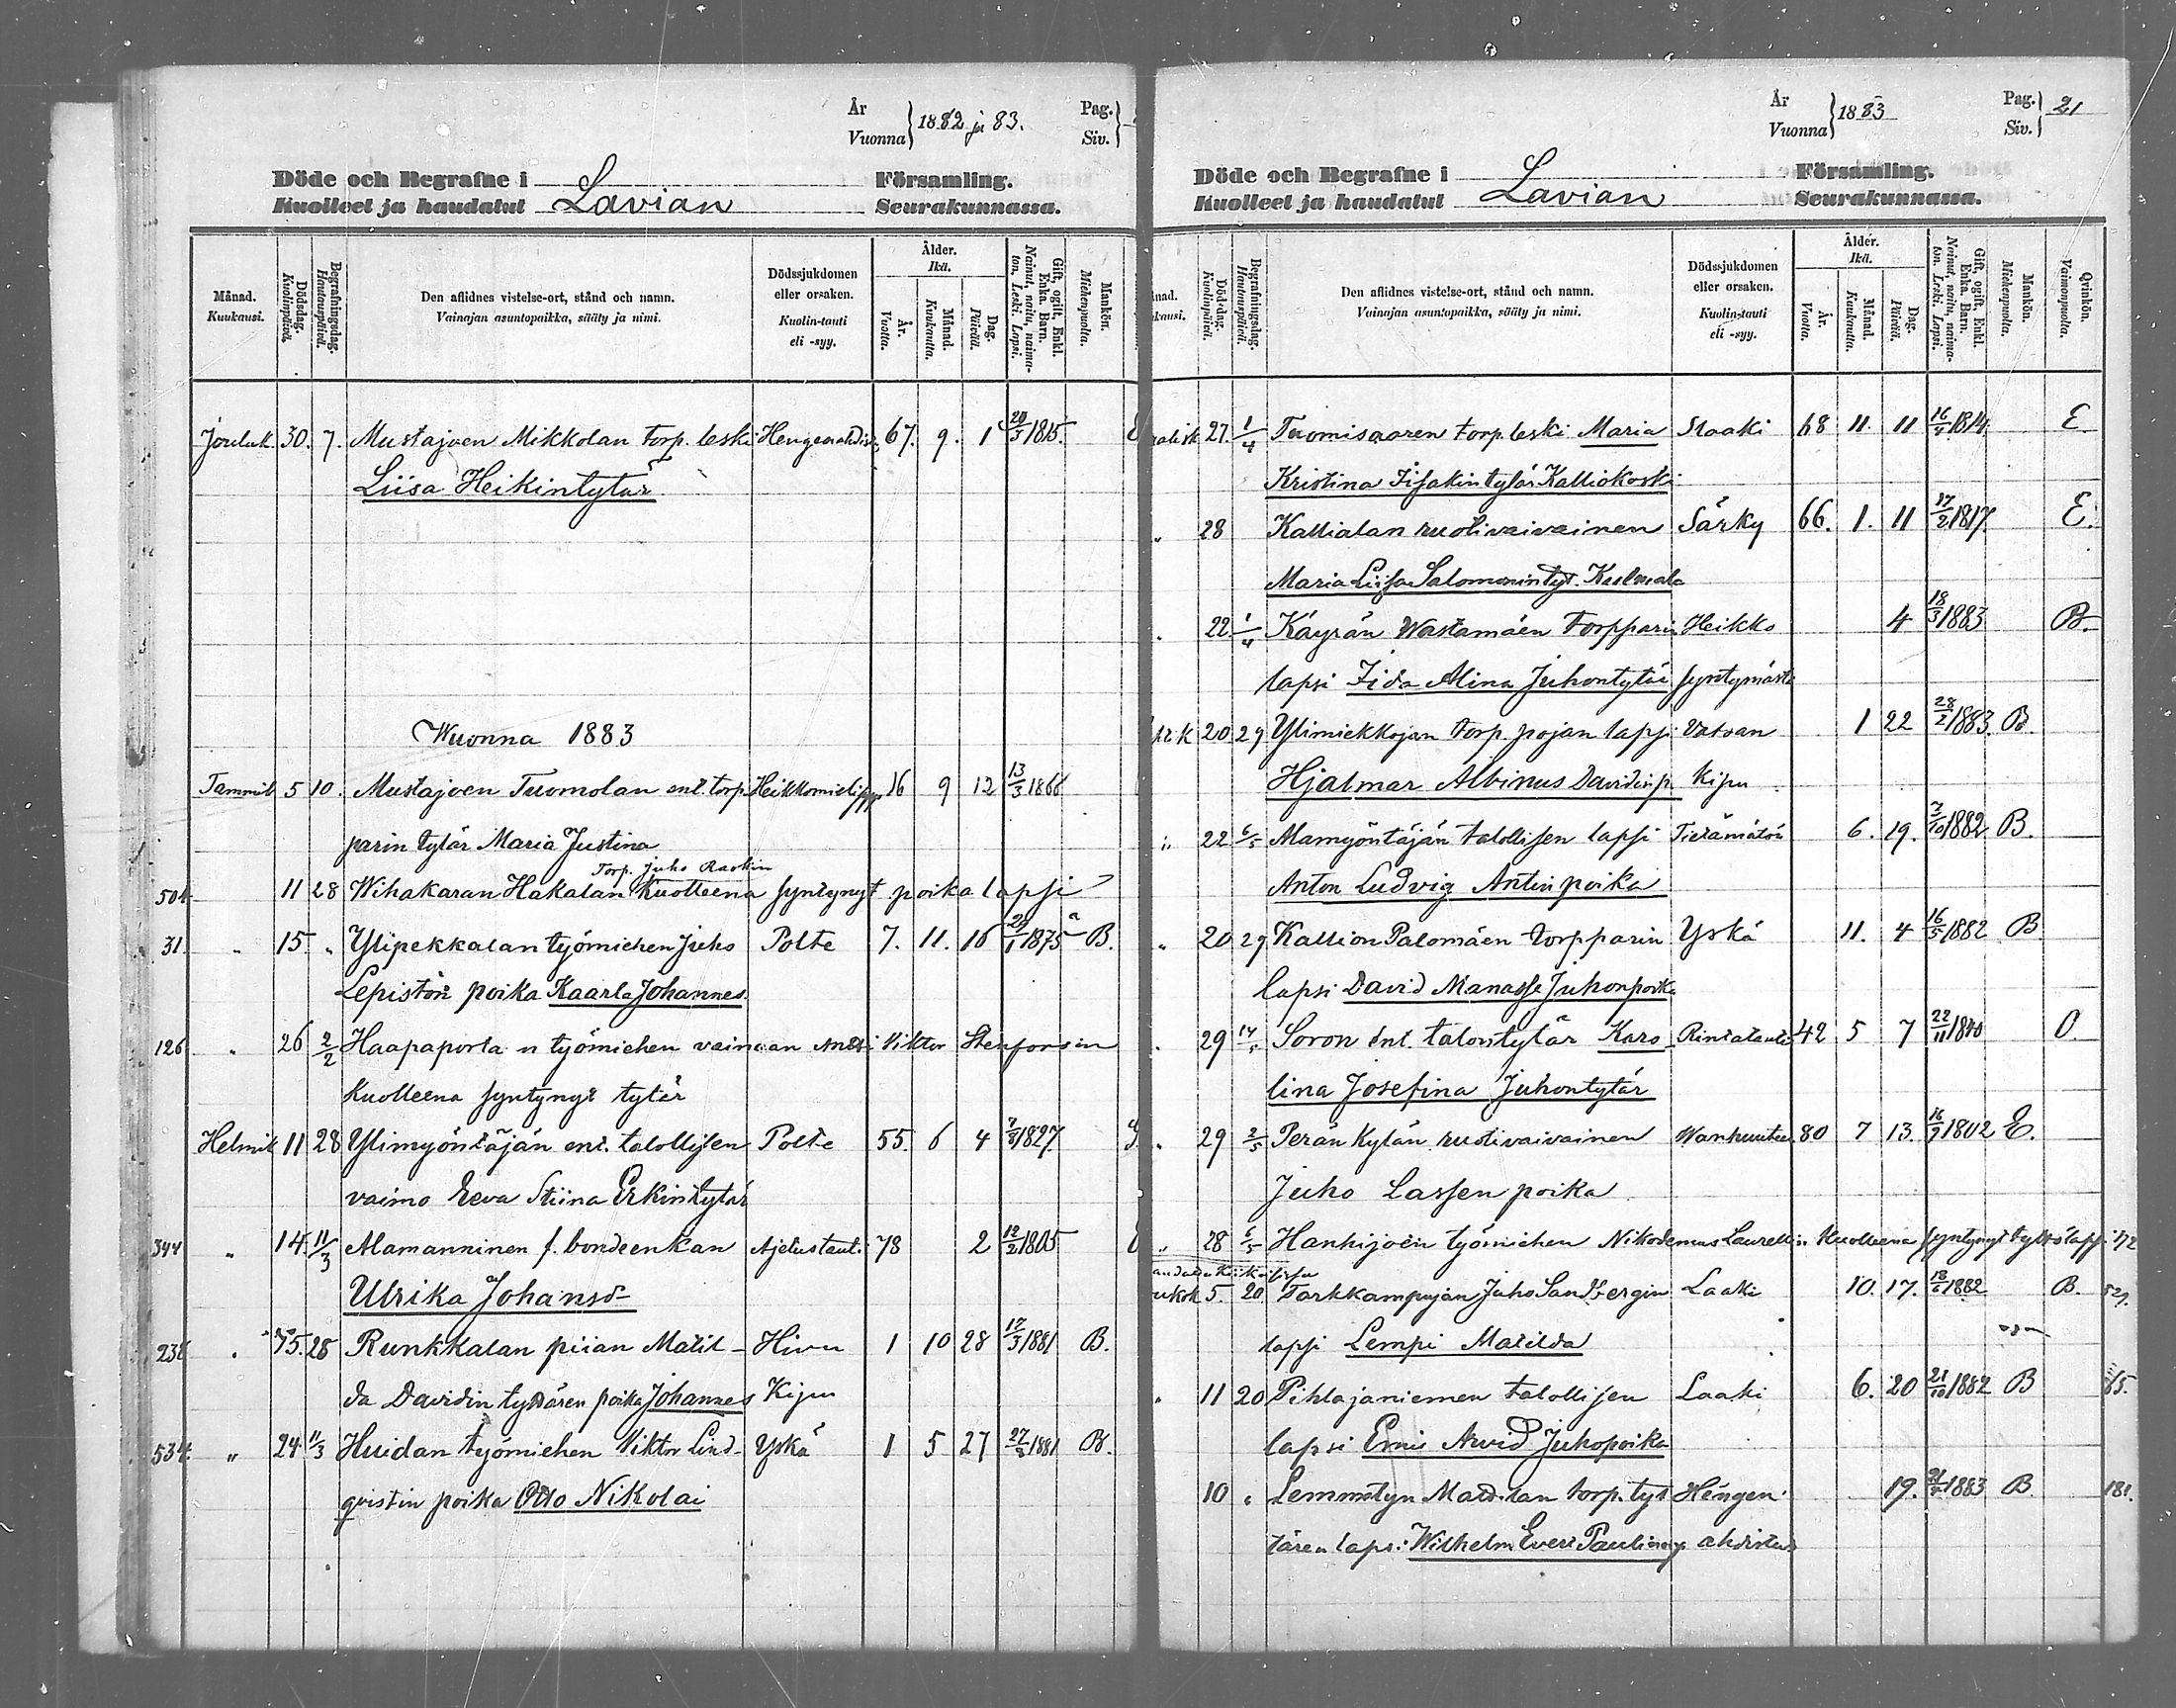 År Vuonna } 1882 ja 83. Pag. Siv. }
Döde och Begrafne i Lavian Församling.
Kuolleet ja haudatut Seurakunnassa.
Månad. Kuukausi.
Dödsdag. Kuolinpäivä.
Begrafningsdag. Hautauspäivä.
Den aflidnes vistelse-ort, stånd och namn.
Vainajan asuntopaikka, sääty ja nimi.
Dödssjukdomen eller orsaken.
Kuolin-tauti eli -syy.
Ålder. Ikä.
År. Vuotta.
Månad. Kuukautta.
Dag. Päivää.
Gift, ogift, Enkl. Enka. Barn. Nainut, naitu, naimaton. Leski. Lapsi.
Mankön. Miehenpuolta.
Jouluk. 30. 7. Mustajoen Mikkolan torp. leski 67. 9. 1 20/3 1815. E
Liisa Heikintytär
Wuonna 1883
Tammik 5 10. Mustajoen Tuomolan ent. torp- 16 9 12 13/3 1866
parin tytär Maria Justina
Torp. Juho Raskin
504 11 28 Wihakaran Hakalan Kuolleena syntynyt poika lapsi
31. " 15. " Ylipekkalan työmiehen Juho Polte 7. 11. 16 29/1 1875 B.
Lepistön poika Kaarla Johannes.
126 " 26 2/2 Haapaporla n työmiehen vainaan Antti Viktor Stenforsin
Kuolleena syntynyt tytär
Helmik 11 28 Ylimyöntäjän ent. talollisen Polte 55. 6 4 7/8 1827.
vaimo Eeva Stiina Erkintytär
344 " 14 11/3 Alamanninen f. bondeenkan Ajetustauti 78 2 12/2 1805
Ulrika Johansd-
238 " 15. 28 Runkkalan piian Matil- Hivu 1 10 28 17/3 1881 B.
da Davidin tyttären poika Johannes Kipu
534. " 24 11/3 Huidan työmiehen Viktor Lind- Yskä 1 5 27 27/8 1881 B.
qvistin poika Otto Nikolai
År Vuonna } 1883 Pag. Siv. } 21
Döde och Begrafne i Lavian Församling.
Kuolleet ja haudatut Seurakunnassa.
Dödsdag. Kuolinpäivä.
Begrafningsdag. Hautauspäivä.
Den aflidnes vistelse-ort, stånd och namn.
Vainajan asuntopaikka, sääty ja nimi.
Dödssjukdomen eller orsaken.
Kuolin-tauti eli -syy.
Ålder. Ikä.
År. Vuotta.
Månad. Kuukautta.
Dag. Päivää.
Gift, ogift, Enkl. Enka. Barn. Nainut, naitu, naimaton. Leski. Lapsi.
Mankön. Miehenpuolta.
Qvinkön. Vaimonpuolta.
27. 1/4 Tuomisaaren torp. leski Maria Slaaki 68 11. 11 16/4 1814. E.
Kristina Iisakintytär Kalliokoski
" 28 Kallialan ruotivaivainen Särky 66. 1. 11 17/2 1817. E.
Maria Liisa Salomonintyt. Kulmala
" 22 1/4 Käyrän Wastamäen torpparin Heikko 4 18/3 1883 B.
lapsi Iida Alina Juhontytär syntymästä
20 29 Ylimiekkojan torp. pojan lapsi Vatsan 1 22 28/2 1883. B.
Hjalmar Albinus Davidinp. kipu
" 22 6/5 Mamyöntäjän talollisen lapsi Tietämätön 6. 19. 3/10 1882 B.
Anton Ludvig Antinpoika
" 20 29 Kallion Palomäen torpparin Yskä 11. 4 16/5 1882 B.
lapsi David Manasse Juhonpoika
" 29 14/5 Soron ent. talontytär Karo- Rintatauti 42 5 7 22/11 1840 O.
lina Josefina Juhontytär
" 29 2/5 Perän kylän ruotivaivainen 80 7 13. 16/9 1802 E.
Juho Lassen poika
" 28 6/5 Hanhijoen työmiehen Nikodemus Laurellin Kuolleena syntynyt tyttölapsi 172
5. 20. Torkkampujan Juho Sandbergin Laaki 10. 17. 18/6 1882 B. 529.
lapsi Lempi Matilda
" 11 20 Pihlajaniemen talollisen Laaki 6. 20 21/10 1882 B
lapsi Ernii Arvid Juhopoika
10 " Lemmstyn Mattilan torp. tyt Hengen- 19. 1883 B 181.
tären lapsi Wilhelm Evert ahdistus